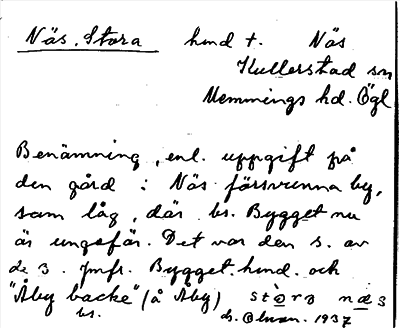 Näs, Stora hmd †. Näs
Kullerstad sn
Memmings hd. Ögl
Benämning, enl. uppgift på
den gård i Näs försvunna by,
som låg, där bs. Bygget nu
är ungefär. Det var den s. av
de 3. Jmfr. Bygget hmd. och
"Åby backe" (å Åby) stòra næs
bs. ds. Olsson. 1937